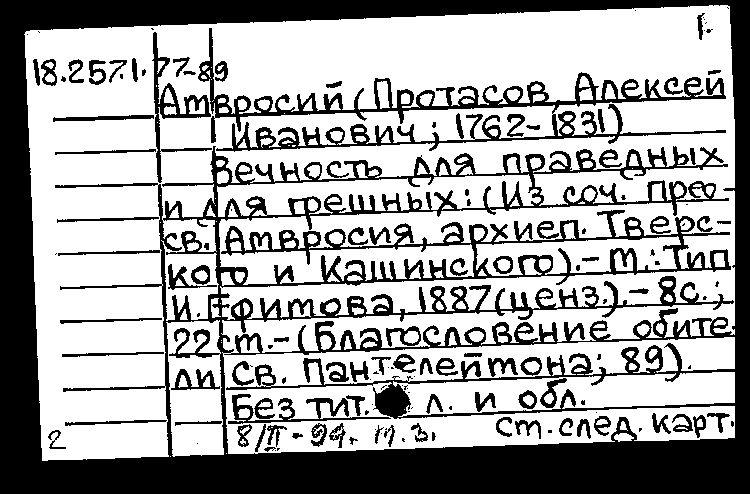 1.
18.257.1.77-89
Амвросий (Протасов, Алексей
Иванович; 1762-1831)
Вечность для праведных
и для грешных: (Из соч. прео-
св. Амвросия, архиеп. Тверс-
кого и Кашинского).- М.: Тип.
И. Ефимова, 1887(ценз.).- 8с.;
22см.-(Благословение обите-
ли Св. Пантелеймона; 89).
Без тит. л. и обл.
2 8/II-94. М.З. См. след. карт.